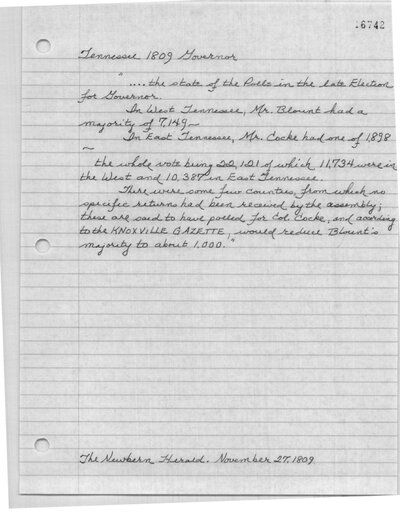 16742
Tennessee 1809 Governor
".... the state of the Polls in the late Election
for Governor.
In West Tennessee, Mr. Blount had a
majority of 7,149~
In East Tennessee, Mr. Cocke had one of 1,898
~
the whole vote being 22,121 of which 11,734 were in
the West and 10,387 in East Tennessee.
There were some few Counties, from which no
specific returns had been received by the assembly;
these are said to have polled for Col. Cocke, and according
to the KNOXVILLE GAZETTE, would reduce Blount's
majority to about 1,000."
The Newbern Herald. November 27, 1809